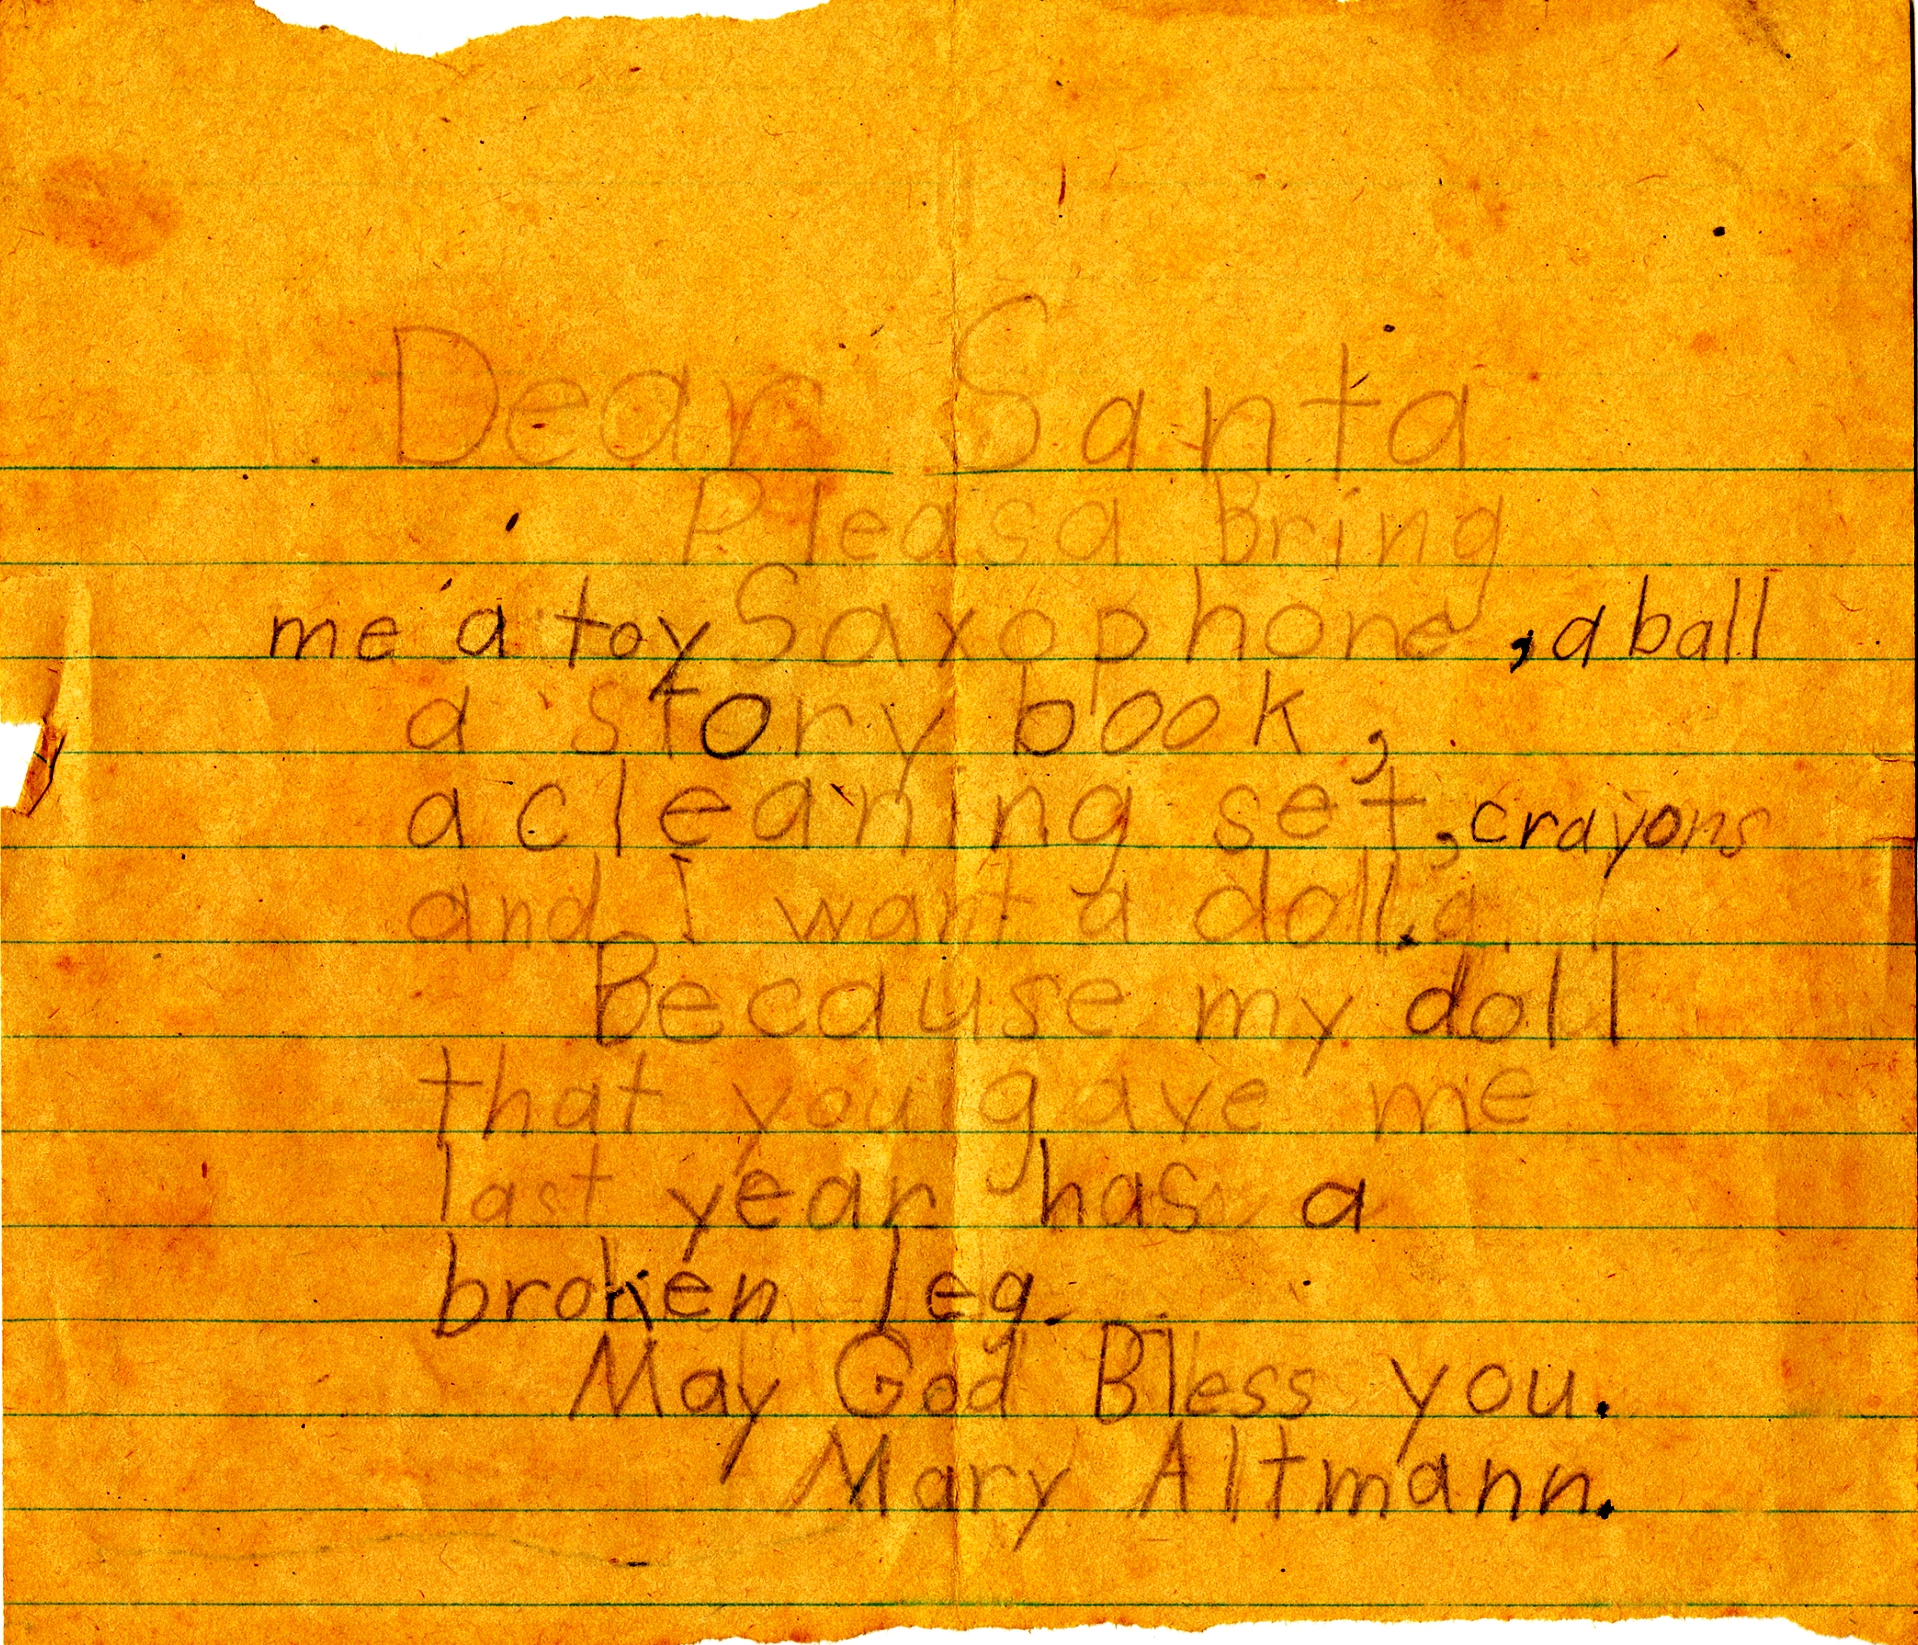 Dear Santa
Pleasa Bring
me a toy Saxophone, a ball
a story book,
a cleaning set, crayons
and I want a doll.
Because my doll
that you gave me
last year has a
broken leg.
May God Bless you.
Mary Altmann.